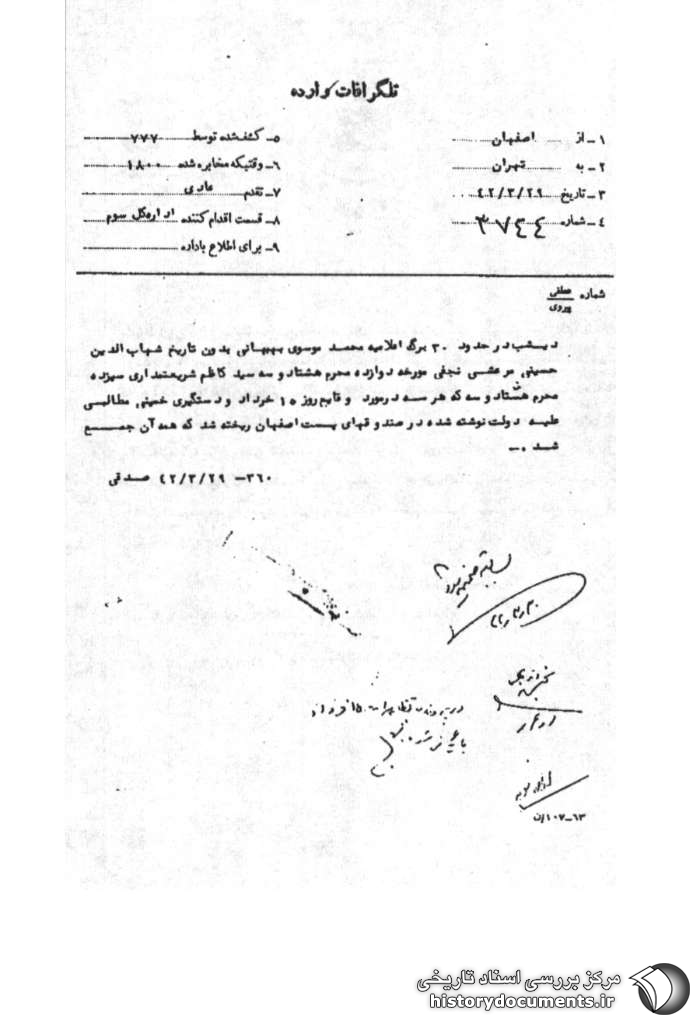 تلگرافات وارده
۱ـ از اصفهان
۲ـ به تهران
۳ـ تاریخ ۴۲/۳/۲۹
۴ـ شماره ۳۷۴۴
۵ـ کشف‌شده توسط ۷۷۷
۶ـ وقتیکه مخابره شده ۱۸۰۰
۷ـ تقدم عادی
۸ـ قسمت اقدام کننده اداره‌کل سوم
۹ـ برای اطلاع باداره
شماره عطفی
پیروی
دیشب در حدود ۳۰ برگ اعلامیه محمد موسوی بهبهانی بدون تاریخ شهاب الدین
حسینی مرعشی نجفی مورخه دوازده محرم هشتاد و سه سید کاظم شریعتمداری سیزده
محرم هشتاد و سه که هر سه در مورد وقایع روز ۱۵ خرداد و دستگیری خمینی مطالبی
علیه دولت نوشته شده در صندوقهای پست اصفهان ریخته شد که همه آن جمع
شد .ـ
۳۶۰ـ ۴۲/۳/۲۹ صدقی
سابقه ضمیمه شود
در پرونده تظاهرات ۱۵ خرداد
۶۳ـ۱۰۷/ن
مرکز بررسی اسناد تاریخی
historydocuments.ir